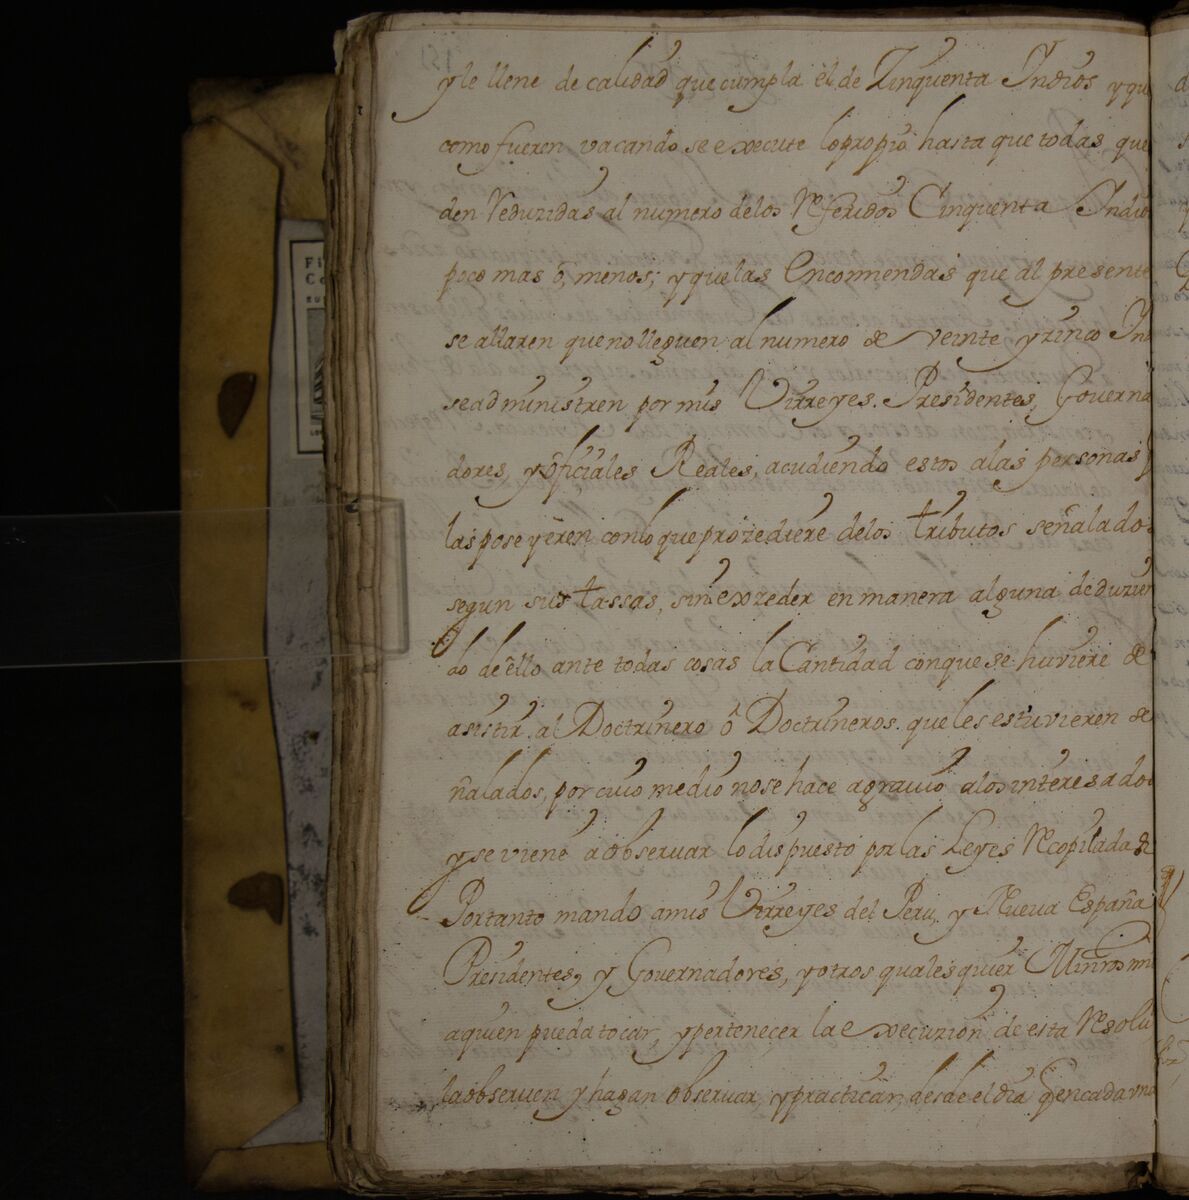 y le llene de calidad que cumpla el de Zinquenta Indios y qu
como fueren vacando se execute lo propio hasta que todas que
den reduzidas al numero de los referidos Cinquenta Indio
poco mas ô, menos; y que las Encomiendas que al presente
se allaren que no lleguen al numero de veinte y zinco Ind
se administren por mis Virreyes. Presidentes, Governa
dores, y oficiales Reales, acudiendo estos a las personas
las poseyeren con lo que prozediere de los tributos señalado
segun sus tassas, sin exzeder en manera alguna deduzien
do de ello ante todas cosas la Cantidad con que se huviere de
asistir al Doctrinero ô Doctrineros que les estuvieren se
ñalados, por cuio medio no se hace agravio a los interesado
y se viene a observar lo dispuesto por las Leyes recopiladas
Por tanto mando a mis Virreyes del Peru, y Nueva España
Presidentes, y Governadores, y otros quales quier Minros mi
a quien pueda tocar, y pertenecer la execuzion de esta resolu
la observen y hagan observar, y practicar, desde el dia q en cada una
Fi
Co